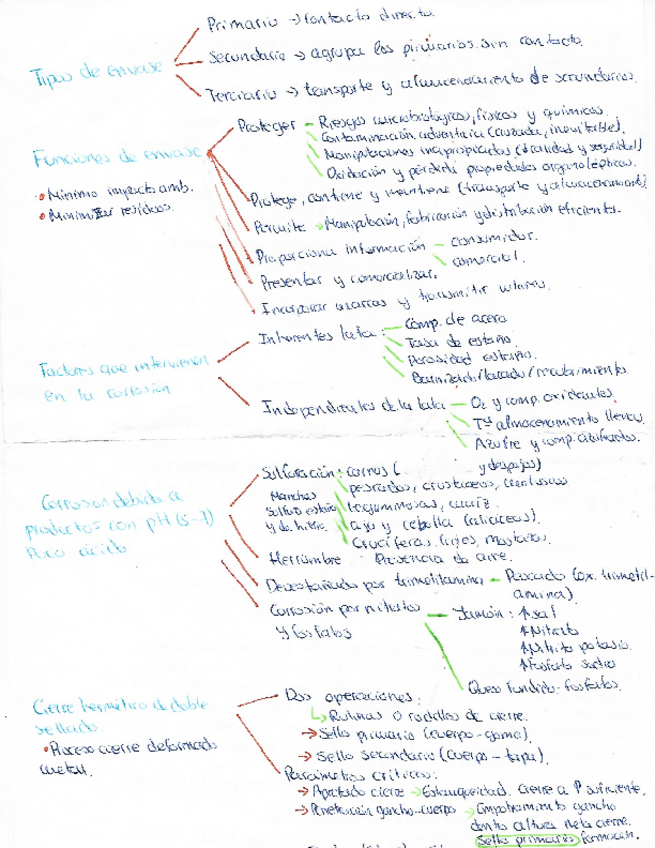 Tipos de envase
Primario → contacto directo
Secundario → agrupa los primarios sin contacto
Terciario → transporte y almacenamiento de secundarios.
Funciones de envase
• Mínimo impacto amb.
• Minimizar residuos.
Proteger – Riesgos microbiológicos, físicos y químicos
Contaminación adventicia (cruzada, inevitable).
Manipulaciones inapropiadas (calidad y seguridad)
Oxidación y pérdida propiedades organolépticas.
Protege, contiene y mantiene (transporte y almacenamiento)
Permite → Manipulación, fabricación y distribución eficientes.
Proporciona información – consumidor.
comercial.
Presentar y comercializar.
Incorporar marcas y transmitir valores.
Factores que intervienen
en la corrosión
Inherentes lata: – Comp. de acero
Tasa de estaño.
Porosidad estaño.
Barnizado/lacado/recubrimiento
Independientes de la lata – O₂ y comp. oxidantes
Tª almacenamiento llenos.
Azufre y comp. azufrados.
Corrosion debida a
productos con pH (5-7)
Poco ácido
Sulfuración: carnes (
y despojos)
Manchas
sulfuro estaño
y de hierro
pescados, crustaceos, moluscos
leguminosas, maíz
ajo y cebolla (aliáceas).
Crucíferas
Herrumbre Presencia de aire.
Desestañado por trimetilamina – Pescado (ox. trimetil-
amina)
Corrosión por nitratos
y fosfatos
– Jamón: ↑sal
↑Nitrato
↑Nitrito potasio
↑Fosfato sodio
Queso fundido: fosfatos.
Cierre hermético de doble
sellado.
• Proceso cierre deformado
metal.
Dos operaciones:
↳ Rulinas o rodillos de cierre.
→ Sello primario (cuerpo-goma).
→ Sello secundario (cuerpo-tapa).
Parámetros críticos:
→ Apretado cierre → Estanqueidad. Cierre a P suficiente.
→ Penetración gancho-cuerpo → Empotramiento gancho
dentro altura neta cierre.
Sello primario formación.